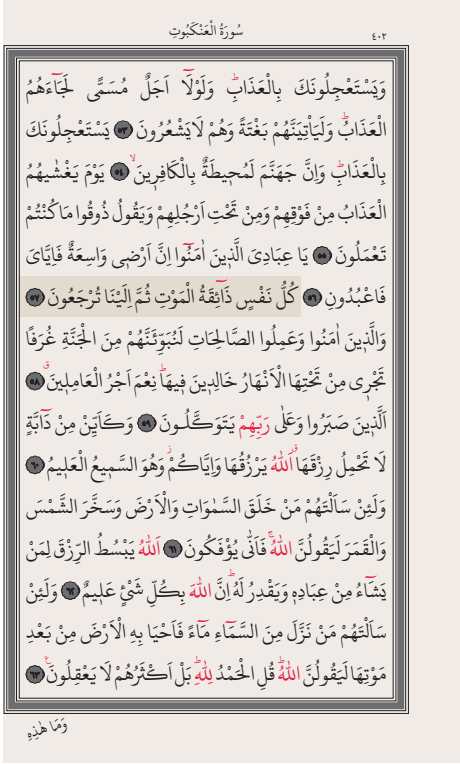 سُورَةُ الْعَنْكَبُوتِ
٤٠٢
وَيَسْتَعْجِلُونَكَ بِالْعَذَابِۜ وَلَوْلَٓا اَجَلٌ مُسَمًّى لَجَٓاءَهُمُ
الْعَذَابُۜ وَلَيَأْتِيَنَّهُمْ بَغْتَةً وَهُمْ لَا يَشْعُرُونَ ﴿٥٣﴾ يَسْتَعْجِلُونَكَ
بِالْعَذَابِۜ وَاِنَّ جَهَنَّمَ لَمُح۪يطَةٌ بِالْكَافِر۪ينَۙ ﴿٥٤﴾ يَوْمَ يَغْشٰيهُمُ
الْعَذَابُ مِنْ فَوْقِهِمْ وَمِنْ تَحْتِ اَرْجُلِهِمْ وَيَقُولُ ذُوقُوا مَا كُنْتُمْ
تَعْمَلُونَ ﴿٥٥﴾ يَا عِبَادِيَ الَّذ۪ينَ اٰمَنُٓوا اِنَّ اَرْض۪ي وَاسِعَةٌ فَاِيَّايَ
فَاعْبُدُونِ ﴿٥٦﴾ كُلُّ نَفْسٍ ذَٓائِقَةُ الْمَوْتِ ثُمَّ اِلَيْنَا تُرْجَعُونَ ﴿٥٧﴾
وَالَّذ۪ينَ اٰمَنُوا وَعَمِلُوا الصَّالِحَاتِ لَنُبَوِّئَنَّهُمْ مِنَ الْجَنَّةِ غُرَفًا
تَجْر۪ي مِنْ تَحْتِهَا الْاَنْهَارُ خَالِد۪ينَ ف۪يهَاۜ نِعْمَ اَجْرُ الْعَامِل۪ينَۗ ﴿٥٨﴾
اَلَّذ۪ينَ صَبَرُوا وَعَلٰى رَبِّهِمْ يَتَوَكَّلُونَ ﴿٥٩﴾ وَكَاَيِّنْ مِنْ دَٓابَّةٍ
لَا تَحْمِلُ رِزْقَهَاۗ اَللّٰهُ يَرْزُقُهَا وَاِيَّاكُمْۘ وَهُوَ السَّم۪يعُ الْعَل۪يمُ ﴿٦٠﴾
وَلَئِنْ سَاَلْتَهُمْ مَنْ خَلَقَ السَّمٰوَاتِ وَالْاَرْضَ وَسَخَّرَ الشَّمْسَ
وَالْقَمَرَ لَيَقُولُنَّ اللّٰهُۚ فَاَنّٰى يُؤْفَكُونَ ﴿٦١﴾ اَللّٰهُ يَبْسُطُ الرِّزْقَ لِمَنْ
يَشَٓاءُ مِنْ عِبَادِه۪ وَيَقْدِرُ لَهُۜ اِنَّ اللّٰهَ بِكُلِّ شَيْءٍ عَل۪يمٌ ﴿٦٢﴾ وَلَئِنْ
سَاَلْتَهُمْ مَنْ نَزَّلَ مِنَ السَّمَٓاءِ مَٓاءً فَاَحْيَا بِهِ الْاَرْضَ مِنْ بَعْدِ
مَوْتِهَا لَيَقُولُنَّ اللّٰهُۜ قُلِ الْحَمْدُ لِلّٰهِۜ بَلْ اَكْثَرُهُمْ لَا يَعْقِلُونَ۟ ﴿٦٣﴾
وَمَا هٰذِهِ